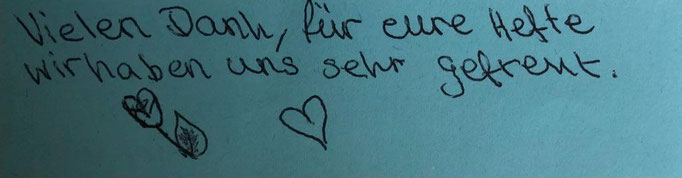 Vielen Dank, für eure Hefte
wir haben uns sehr gefreut.